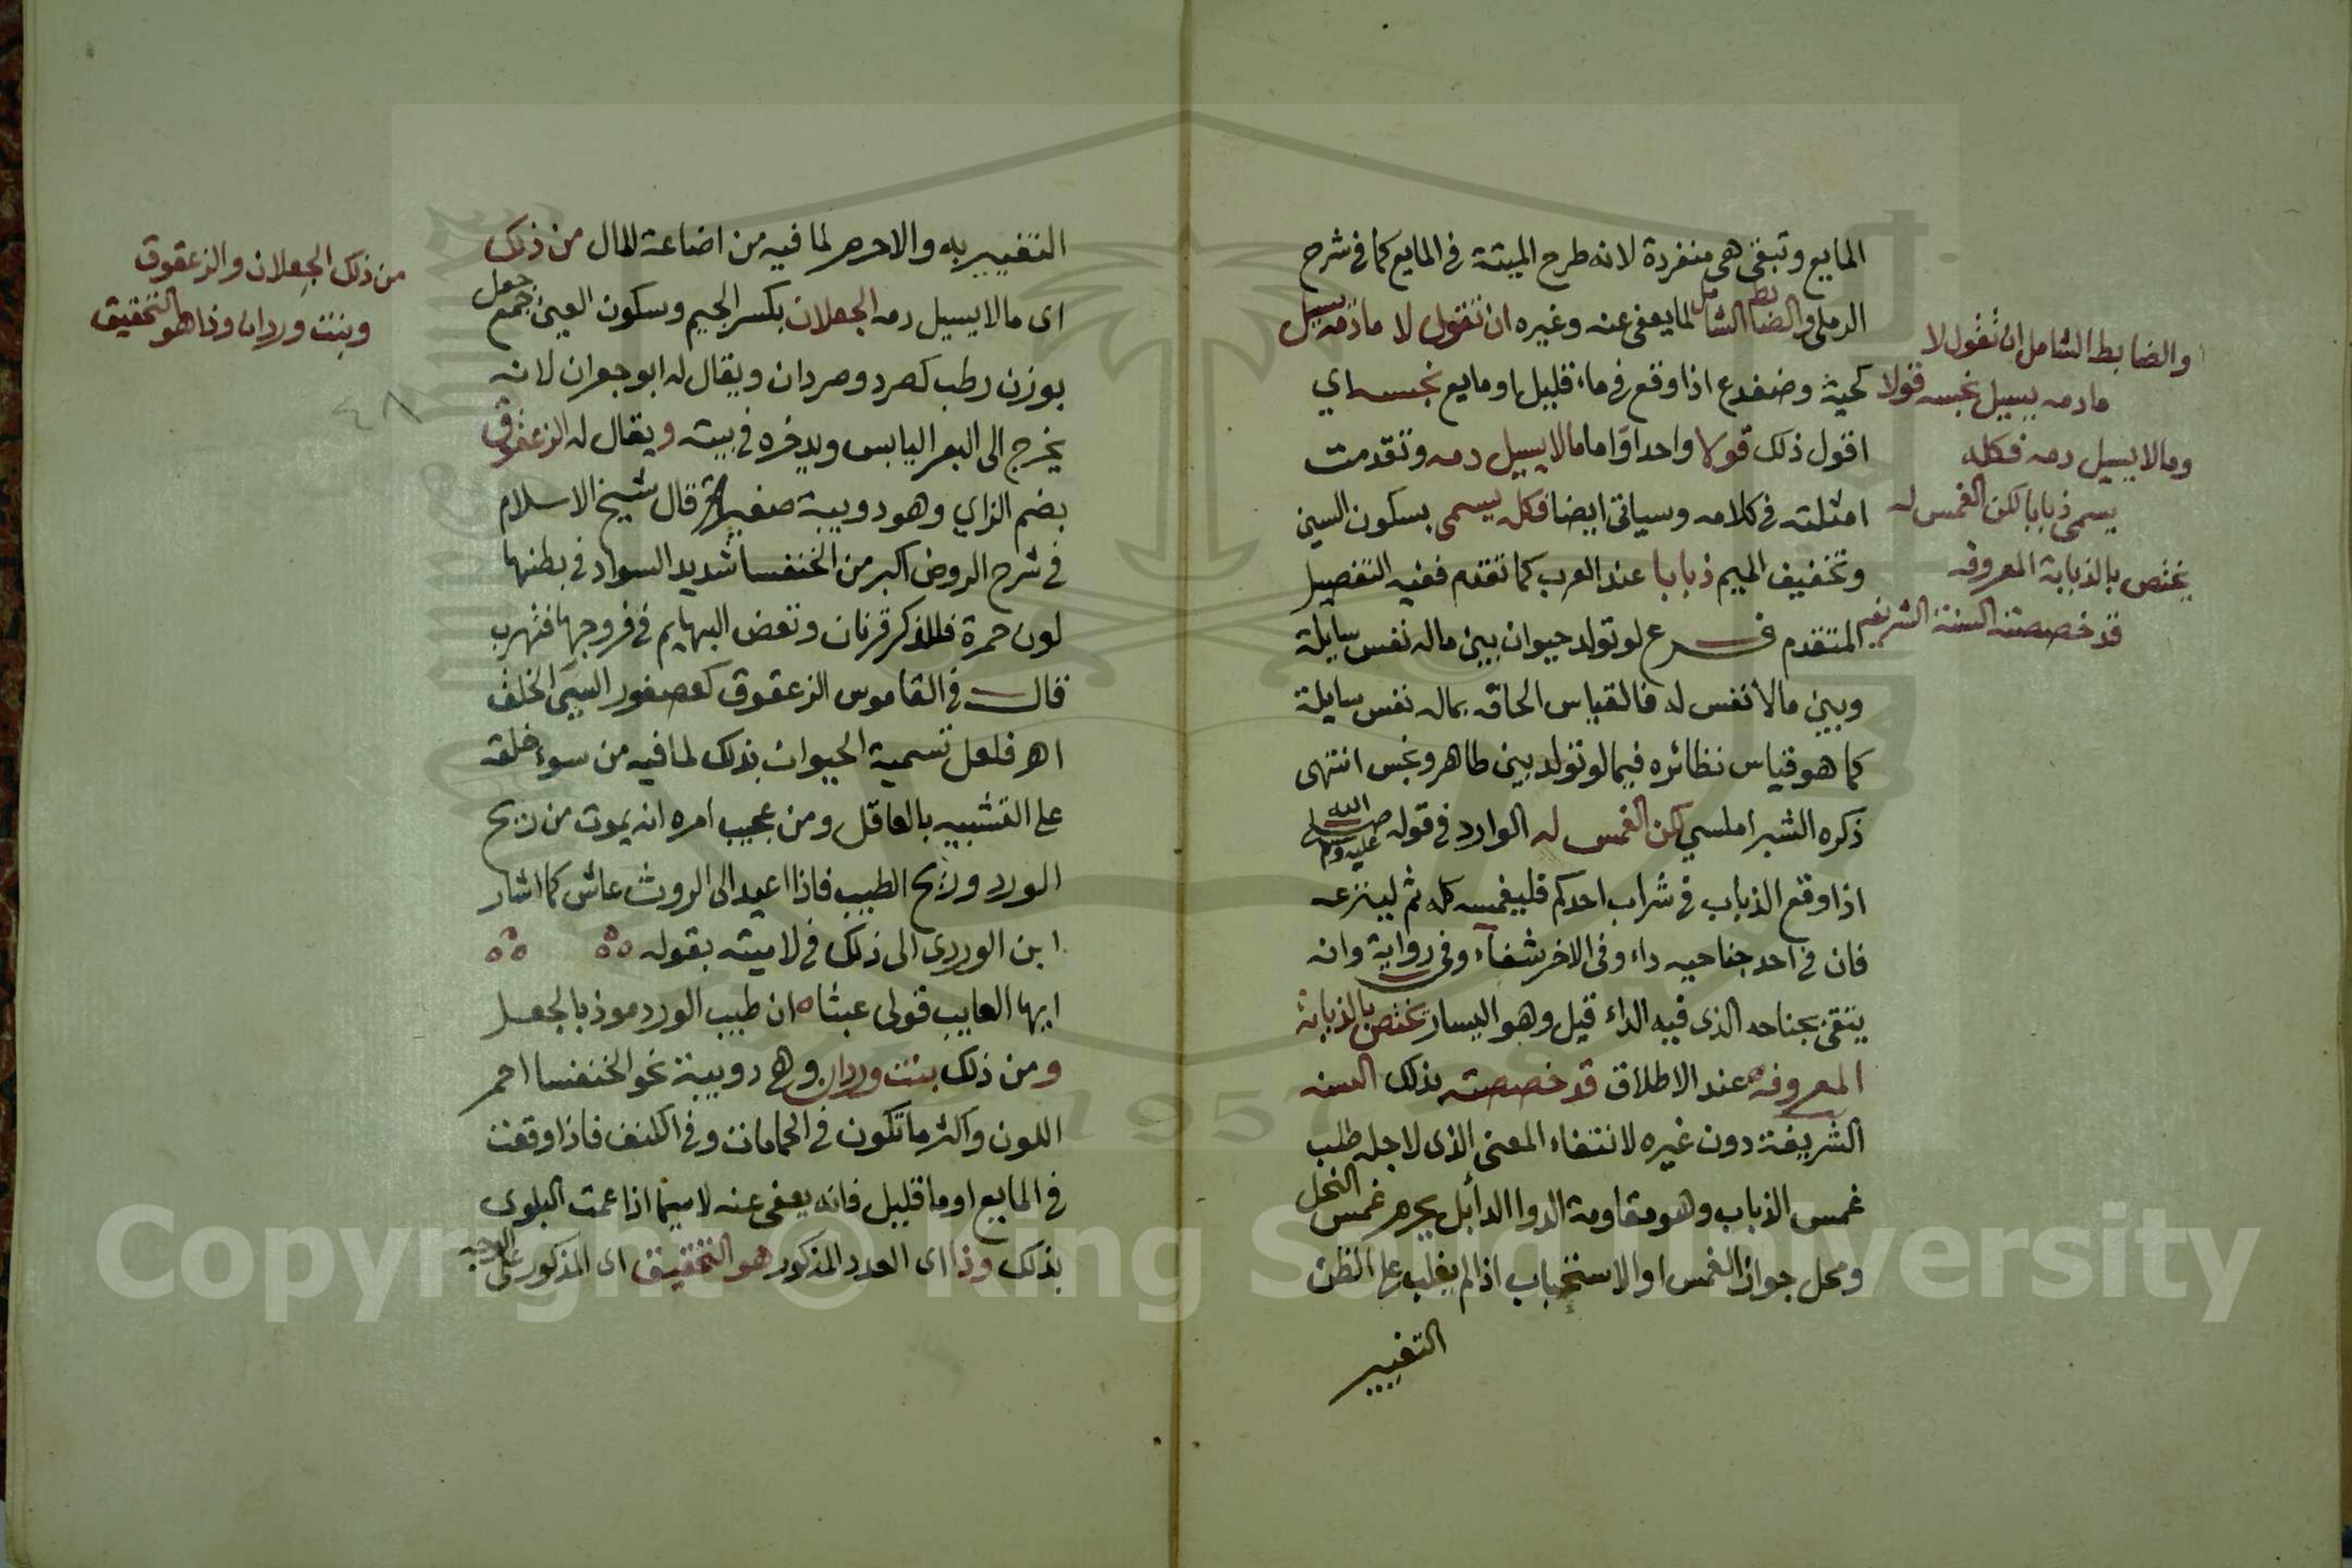 المايع وتبقى هى منفردة لانه طرح الميتة فى المايع كما فى شرح
الرملى والضابط الشامل لما يعفى عنه وغيره ان تقول لا ما دمه يسيل
كحية وضفدع اذا وقع فى ماء قليل او مايع نجسه اي
اقول ذلك قولا واحدا واما ما لا يسيل دمه وتقدمت
امثلته فى كلامه وسياتى ايضا فكله يسمى بسكون السين
وتخفيف الميم ذبابا عند العرب كما تقدم ففيه التفصيل
المتقدم فرع لو تولد حيوان بين ماله نفس سايلة
وبين ما لا نفس له فالقياس الحاقه بماله نفس سايلة
كما هو قياس نظائره فيما لو تولد بين طاهر ونجس انتهى
ذكره الشبراملسي لكن الغمس له الوارد فى قوله صلى الله عليه وسلم
اذا وقع الذباب فى شراب احدكم فليغمسه كله ثم لينزعه
فان فى احد جناحيه داء وفى الاخر شفاء وفى رواية وانه
يتقى بجناحه الذى فيه الداء قيل وهو اليسار يختص بالذبابة
المعروفه عند الاطلاق قد خصصته بذلك السنه
الشريفة دون غيره لانتفاء المعنى الذى لاجله طلب
غمس الذباب وهو مقاومة الدوا الداء بل يحرم غمس النحل
ومحل جواز الغمس او الاستحباب اذا لم يغلب على الظن
التغيير
والضابط الشامل ان تقول لا
ما دمه يسيل نجسه قولا
وما لا يسيل دمه فكله
يسمى ذبابا لكن الغمس له
يختص بالذبابة المعروفه
قد خصصته السنة الشريفه
التغيير به والا حرم لما فيه من اضاعة المال من ذلك
اى ما لا يسيل دمه الجعلان بكسر الجيم وسكون العين جمع جعل
بوزن رطب كصرد وصردان ويقال له ابو جعران لانه
يخرج الى البعر اليابس ويدخره فى بيته ويقال له الزعقوق
بضم الزاي وهو دويبة صغيرة قال شيخ الاسلام
فى شرح الروض اكبر من الخنفسا شديد السواد فى بطنها
لون حمرة فللذكر قرنان وتعض البهايم فى فروجها فتهرب
قال فى القاموس الزعقوق كعصفور السيئ الخلق
اهـ فلعل تسمية الحيوان بذلك لما فيه من سوء خلقه
على التشبيه بالعاقل ومن عجيب امره انه يموت من ريح
الورد وريح الطيب فاذا اعيد الى الروث عاش كما اشار
ابن الوردى الى ذلك فى لاميته بقوله
ايها العايب قولى عبثا ان طيب الورد موذ بالجعل
ومن ذلك بنت وردان وهى دويبة نحو الخنفسا احمر
اللون واكثر ما تكون فى الحمامات وفى الكنف فاذا وقعت
فى المايع او ما قليل فانه يعفى عنه لا سيما اذا عمت البلوى
بذلك وذا اى العدد المذكور هو التحقيق اى المذكور على الوجه
من ذلك الجعلان والزعقوق
وبنت وردان وذا هو التحقيق
٤٨
Copyright © King Saud University
1957